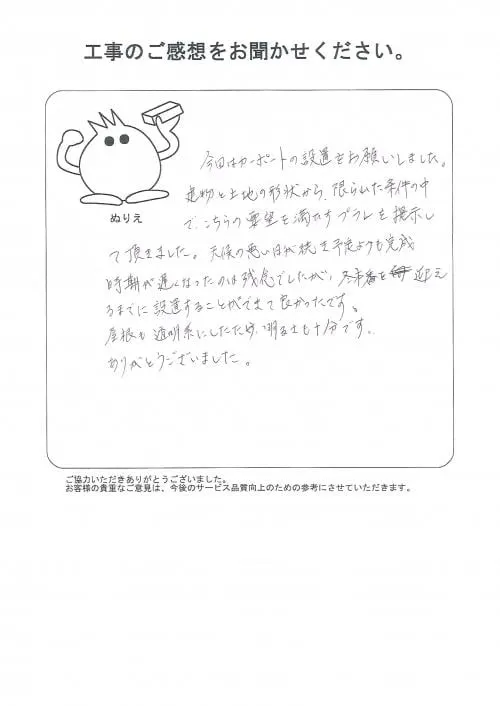 工事のご感想をお聞かせください。
ぬりえ
今回はカーポートの設置をお願いしました。
建物と土地の形状から、限られた条件の中
で、こちらの要望を満たすプランを提示し
て頂きました。天候の悪い日が続き予定よりも完成
時期が遅くなったのは残念でしたが、冬本番を迎え
るまでに設置することができて良かったです。
屋根も透明系にしたため、明るさも十分です。
ありがとうございました。
ご協力いただきありがとうございました。
お客様の貴重なご意見は、今後のサービス品質向上のための参考にさせていただきます。